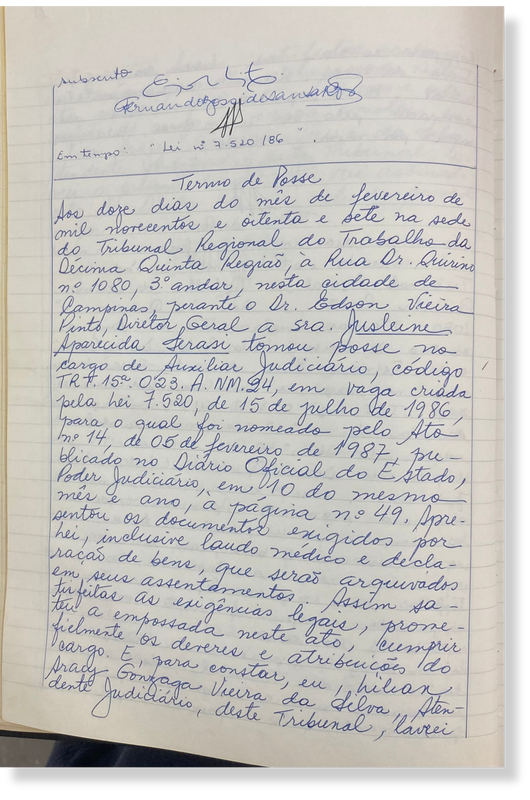 subscrito
Em tempo: "Lei nº 7.520/86".
Termo de Posse
Aos doze dias do mês de fevereiro de
mil novecentos e oitenta e sete na sede
do Tribunal Regional do Trabalho da
Décima Quinta Região, à Rua Dr. Quirino
nº 1080, 3º andar, nesta cidade de
Campinas, perante o Dr. Edson Vieira
Pinto, Diretor Geral a sra. Jusleine
Aparecida Serasi tomou posse no
cargo de Auxiliar Judiciário, código
TRT.15ª.023.A.NM.24, em vaga criada
pela Lei 7.520, de 15 de julho de 1986,
para o qual foi nomeado pelo Ato
nº 14, de 05 de fevereiro de 1987, pu-
blicado no Diário Oficial do Estado,
Poder Judiciário, em 10 do mesmo
mês e ano, à página nº 49. Apre-
sentou os documentos exigidos por
lei, inclusive laudo médico e decla-
ração de bens, que serão arquivados
em seus assentamentos. Assim sa-
tisfeitas as exigências legais, prome-
teu a empossada neste ato, cumprir
fielmente os deveres e atribuições do
cargo. E, para constar, eu, Lilian
Aracy Gonzaga Vieira da Silva, Aten-
dente Judiciário, deste Tribunal, lavrei